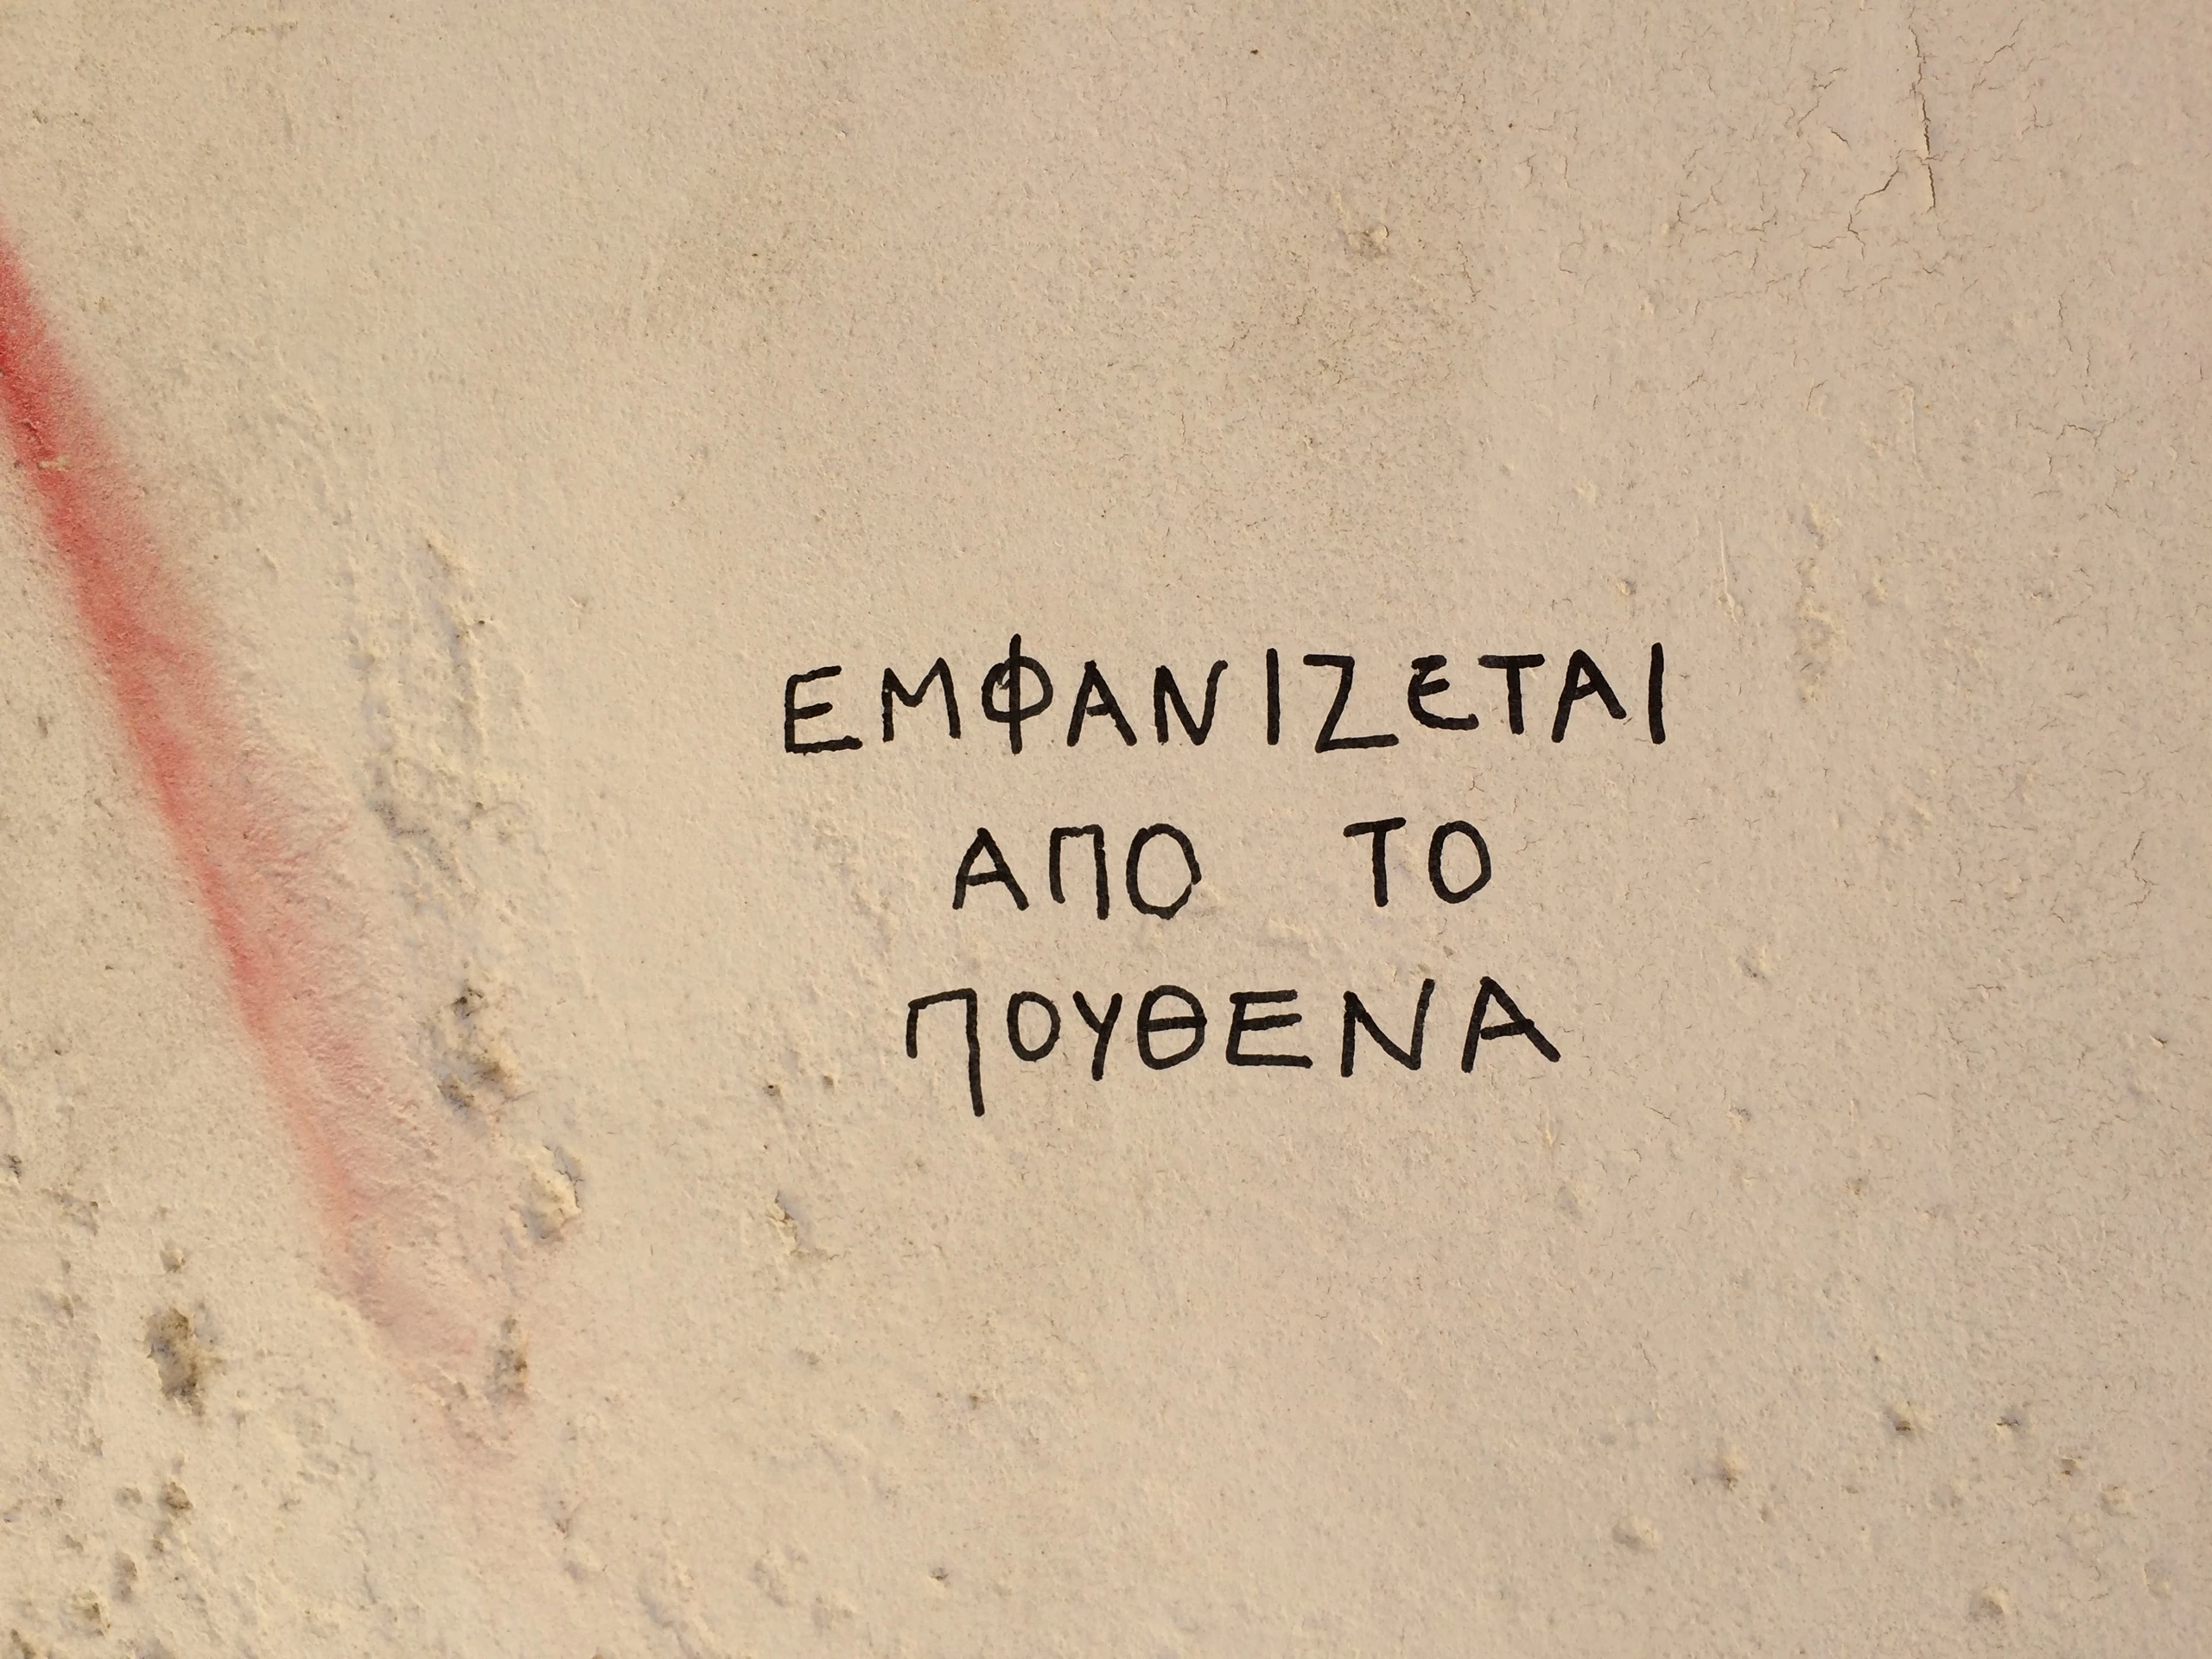 ΕΜΦΑΝΙΖΕΤΑΙ
ΑΠΟ ΤΟ
ΠΟΥΘΕΝΑ